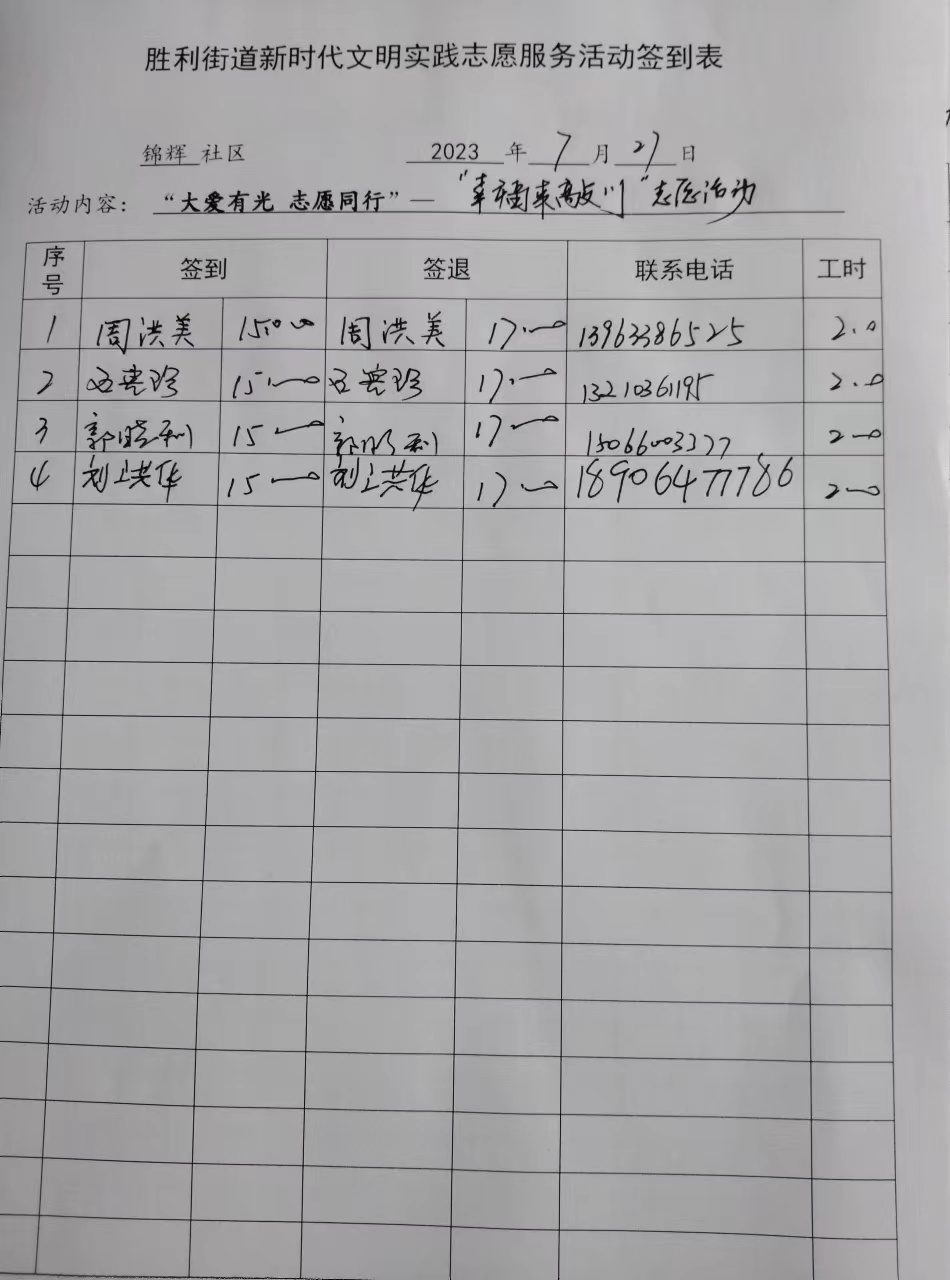 胜利街道新时代文明实践志愿服务活动签到表
锦辉 社区 2023 年 7 月 27 日
活动内容: “大爱有光 志愿同行”— “幸福来敲门”志愿活动
序号 签到 签退 联系电话 工时
1 周洪美 15:00 周洪美 17:00 13963386525 2.0
2 15:00 17:00 13210361195 2.0
3 郭晓利 15:00 郭晓利 17:00 15066003377 2.0
4 15:00 17:00 18906477786 2.0